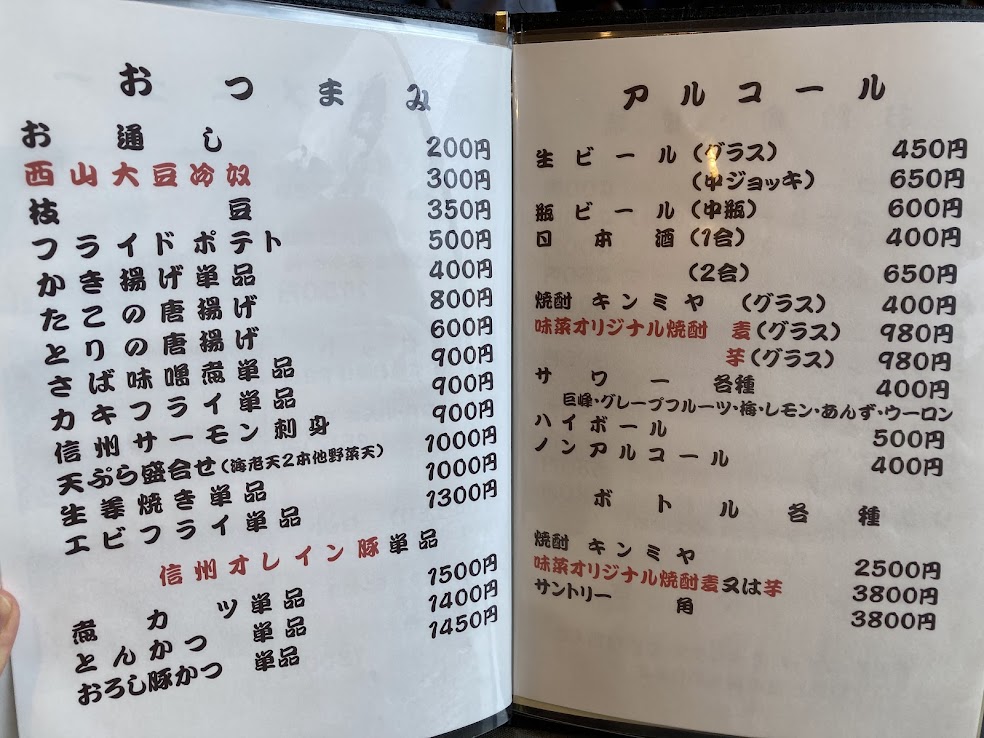 おつまみ
お通し 200円
西山大豆冷奴 300円
枝豆 350円
フライドポテト 500円
かき揚げ単品 400円
たこの唐揚げ 800円
とりの唐揚げ 600円
さば味噌煮単品 900円
カキフライ単品 900円
信州サーモン刺身 900円
天ぷら盛合せ(海老天2本他野菜天) 1000円
生姜焼き単品 1000円
エビフライ単品 1300円
信州オレイン豚単品
煮カツ単品 1500円
とんかつ単品 1400円
おろし豚かつ単品 1450円
アルコール
生ビール(グラス) 450円
(中ジョッキ) 650円
瓶ビール(中瓶) 600円
日本酒(1合) 400円
(2合) 650円
焼酎 キンミヤ (グラス) 400円
味菜オリジナル焼酎 麦(グラス) 980円
芋(グラス) 980円
サワー 各種 400円
巨峰・グレープフルーツ・梅・レモン・あんず・ウーロン
ハイボール 500円
ノンアルコール 400円
ボトル各種
焼酎 キンミヤ 2500円
味菜オリジナル焼酎麦又は芋 3800円
サントリー 角 3800円